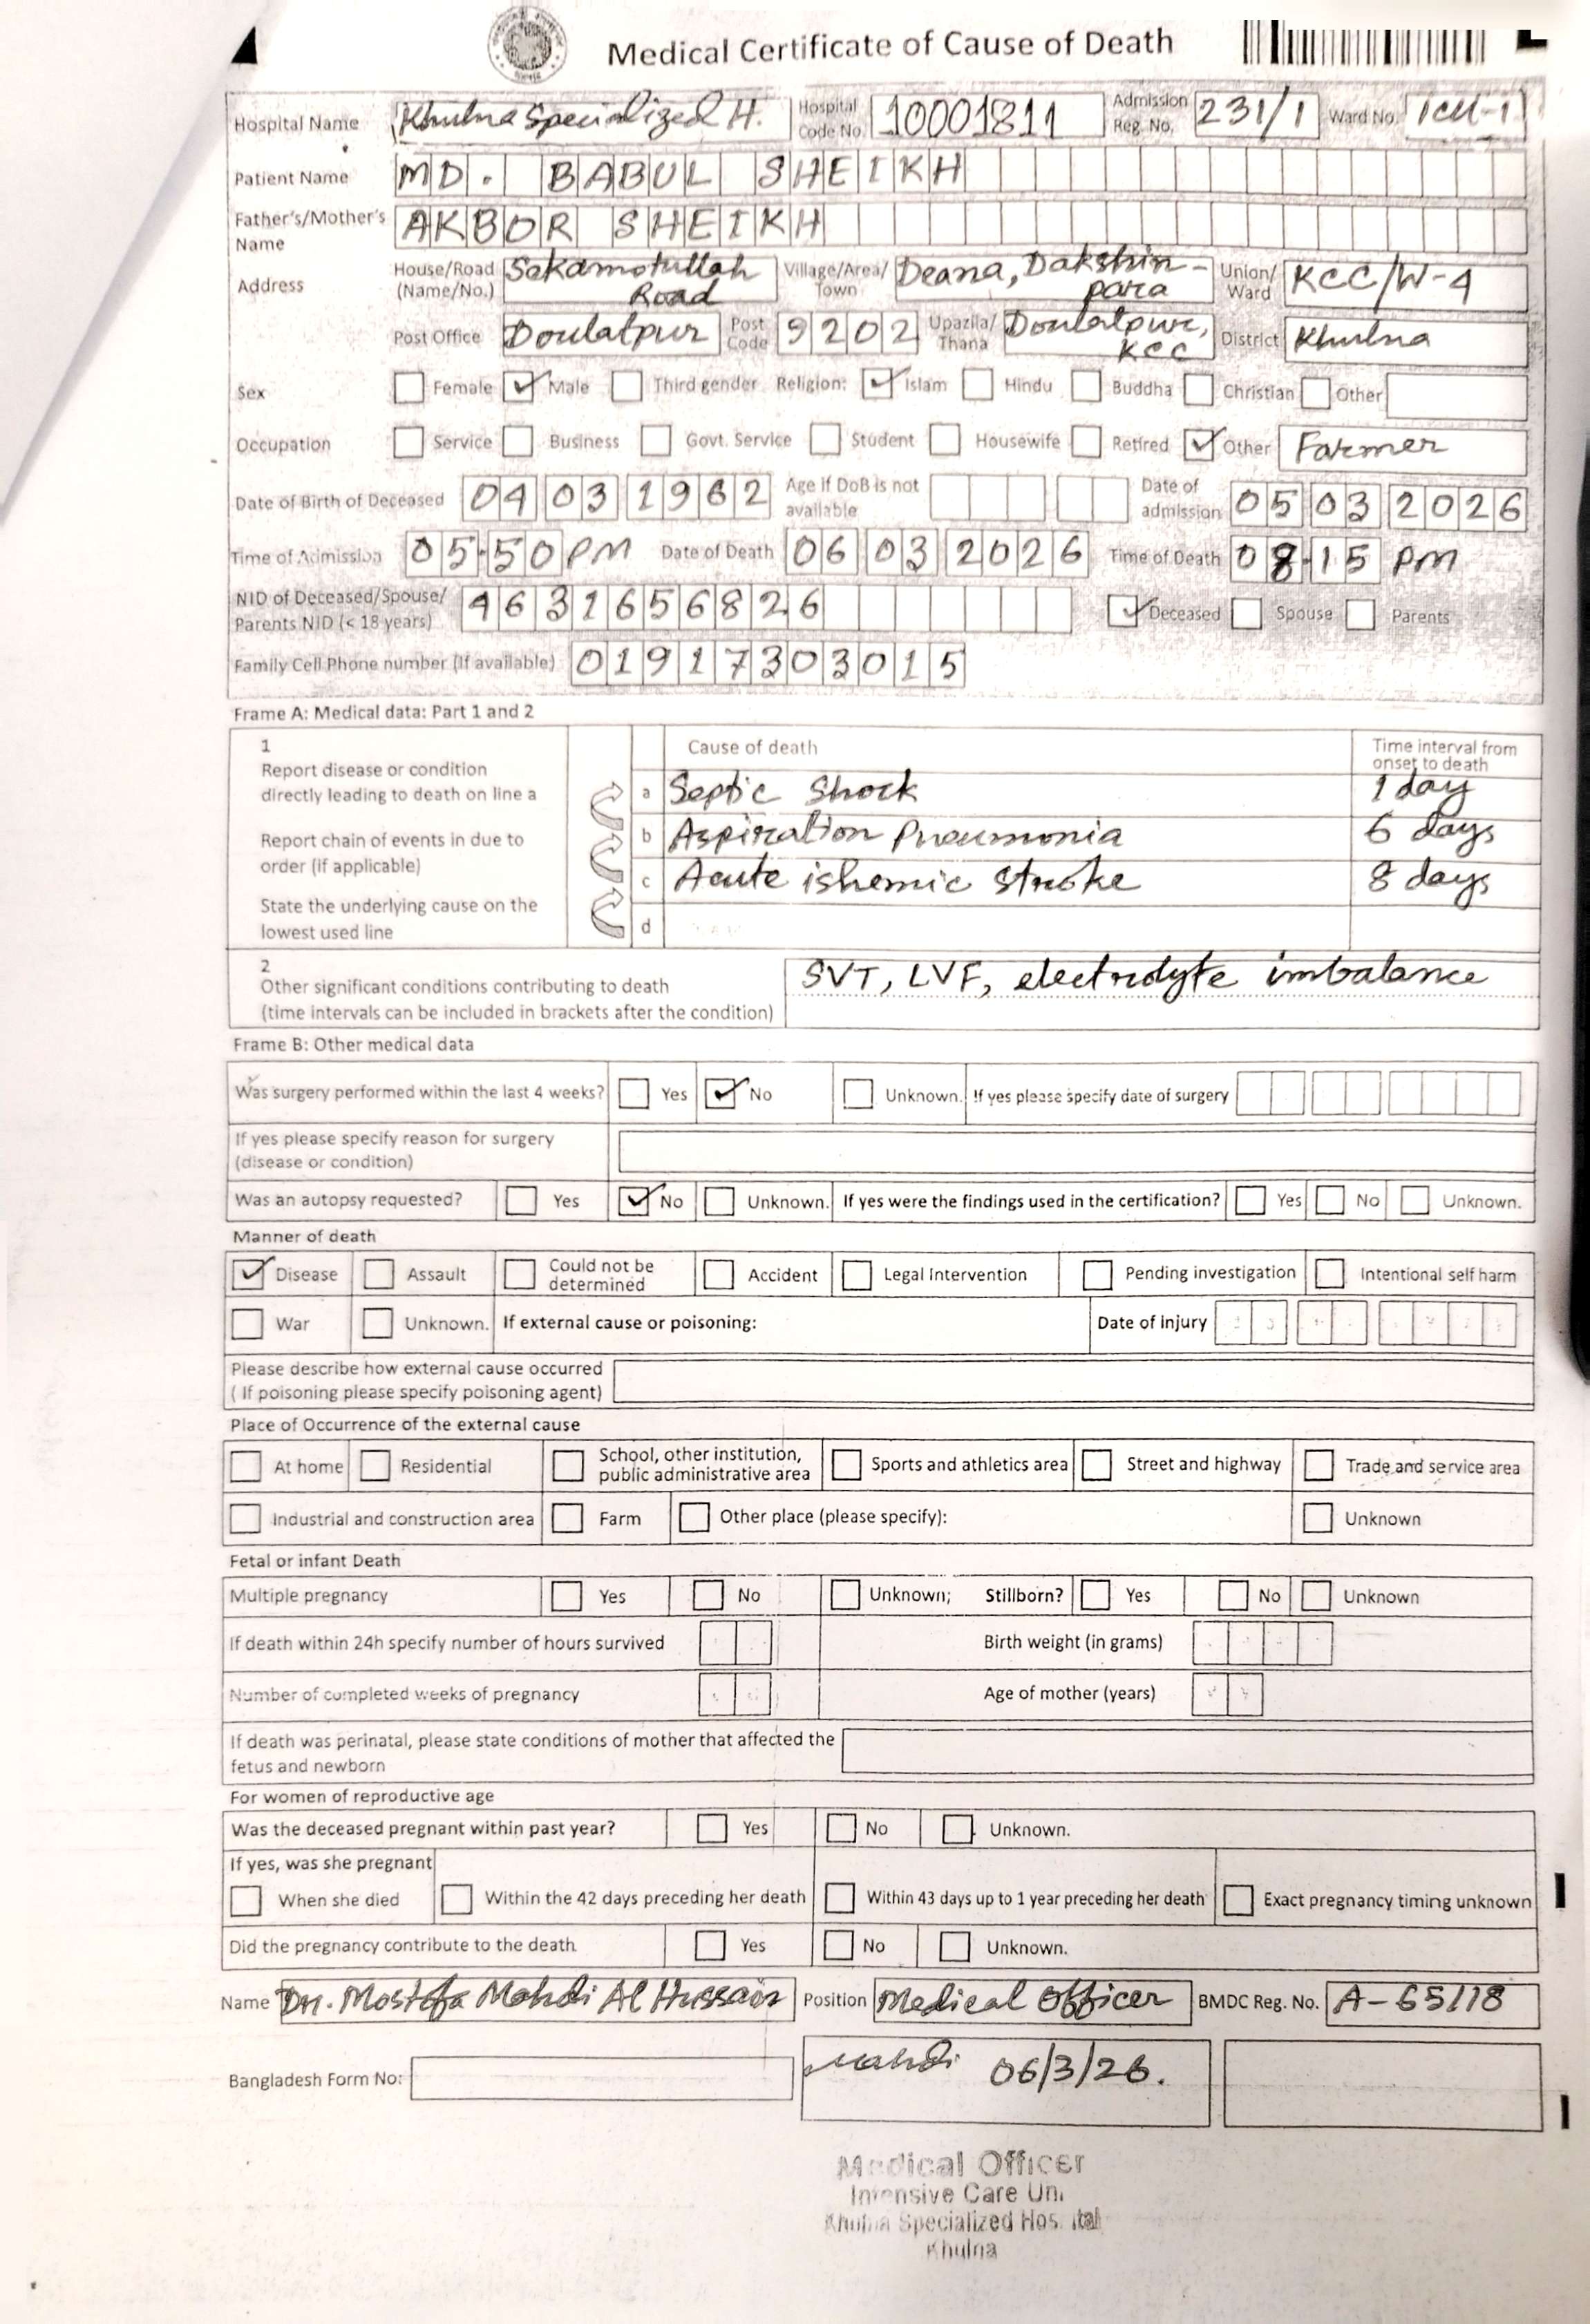 Medical Certificate of Cause of Death
Hospital Name Khulna Specialized H. Hospital Code No. 10001811 Admission Reg. No. 231/1 Ward No. ICU-1
Patient Name MD. BABUL SHEIKH
Father's/Mother's Name AKBOR SHEIKH
Address House/Road (Name/No.) Sakamotullah Road Village/Area/Town Deana, Dakshin-para Union/Ward KCC/W-4
Post Office Doulatpur Post Code 9202 Upazila/Thana Doulatpur, KCC District Khulna
Sex Female Male Third gender Religion: Islam Hindu Buddha Christian Other
Occupation Service Business Govt. Service Student Housewife Retired Other Farmer
Date of Birth of Deceased 04 03 1962 Age if DoB is not available Date of admission 05 03 2026
Time of Admission 05.50 PM Date of Death 06 03 2026 Time of Death 08.15 PM
NID of Deceased/Spouse/Parents NID (< 18 years) 4631656826 Deceased Spouse Parents
Family Cell Phone number (If available) 01917303015
Frame A: Medical data: Part 1 and 2
1 Cause of death Time interval from onset to death
Report disease or condition directly leading to death on line a
a Septic Shock 1 day
Report chain of events in due to order (if applicable)
b Aspiration Pneumonia 6 days
c Acute ishemic stroke 8 days
State the underlying cause on the lowest used line
d
2
Other significant conditions contributing to death (time intervals can be included in brackets after the condition) SVT, LVF, electrolyte imbalance
Frame B: Other medical data
Was surgery performed within the last 4 weeks? Yes No Unknown. If yes please specify date of surgery
If yes please specify reason for surgery (disease or condition)
Was an autopsy requested? Yes No Unknown. If yes were the findings used in the certification? Yes No Unknown.
Manner of death
Disease Assault Could not be determined Accident Legal Intervention Pending investigation Intentional self harm
War Unknown. If external cause or poisoning: Date of injury
Please describe how external cause occurred
( If poisoning please specify poisoning agent)
Place of Occurrence of the external cause
At home Residential School, other institution, public administrative area Sports and athletics area Street and highway Trade and service area
Industrial and construction area Farm Other place (please specify): Unknown
Fetal or infant Death
Multiple pregnancy Yes No Unknown; Stillborn? Yes No Unknown
If death within 24h specify number of hours survived Birth weight (in grams)
Number of completed weeks of pregnancy Age of mother (years)
If death was perinatal, please state conditions of mother that affected the fetus and newborn
For women of reproductive age
Was the deceased pregnant within past year? Yes No Unknown.
If yes, was she pregnant
When she died Within the 42 days preceding her death Within 43 days up to 1 year preceding her death Exact pregnancy timing unknown
Did the pregnancy contribute to the death Yes No Unknown.
Name Dr. Mostofa Mahdi Al Hussain Position Medical Officer BMDC Reg. No. A-65118
Bangladesh Form No: Mahdi 06/3/26.
Medical Officer
Intensive Care Uni
Khulna Specialized Hospital
Khulna